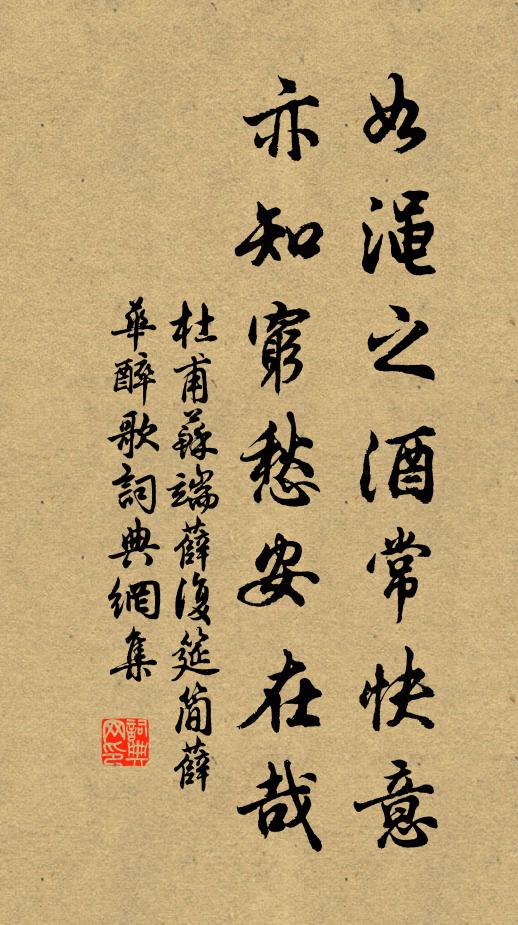 如渑之酒常快意
亦知窮愁安在哉
杜甫蘇端薛復筵簡薛
華醉歌詞典網集
詞典
网印